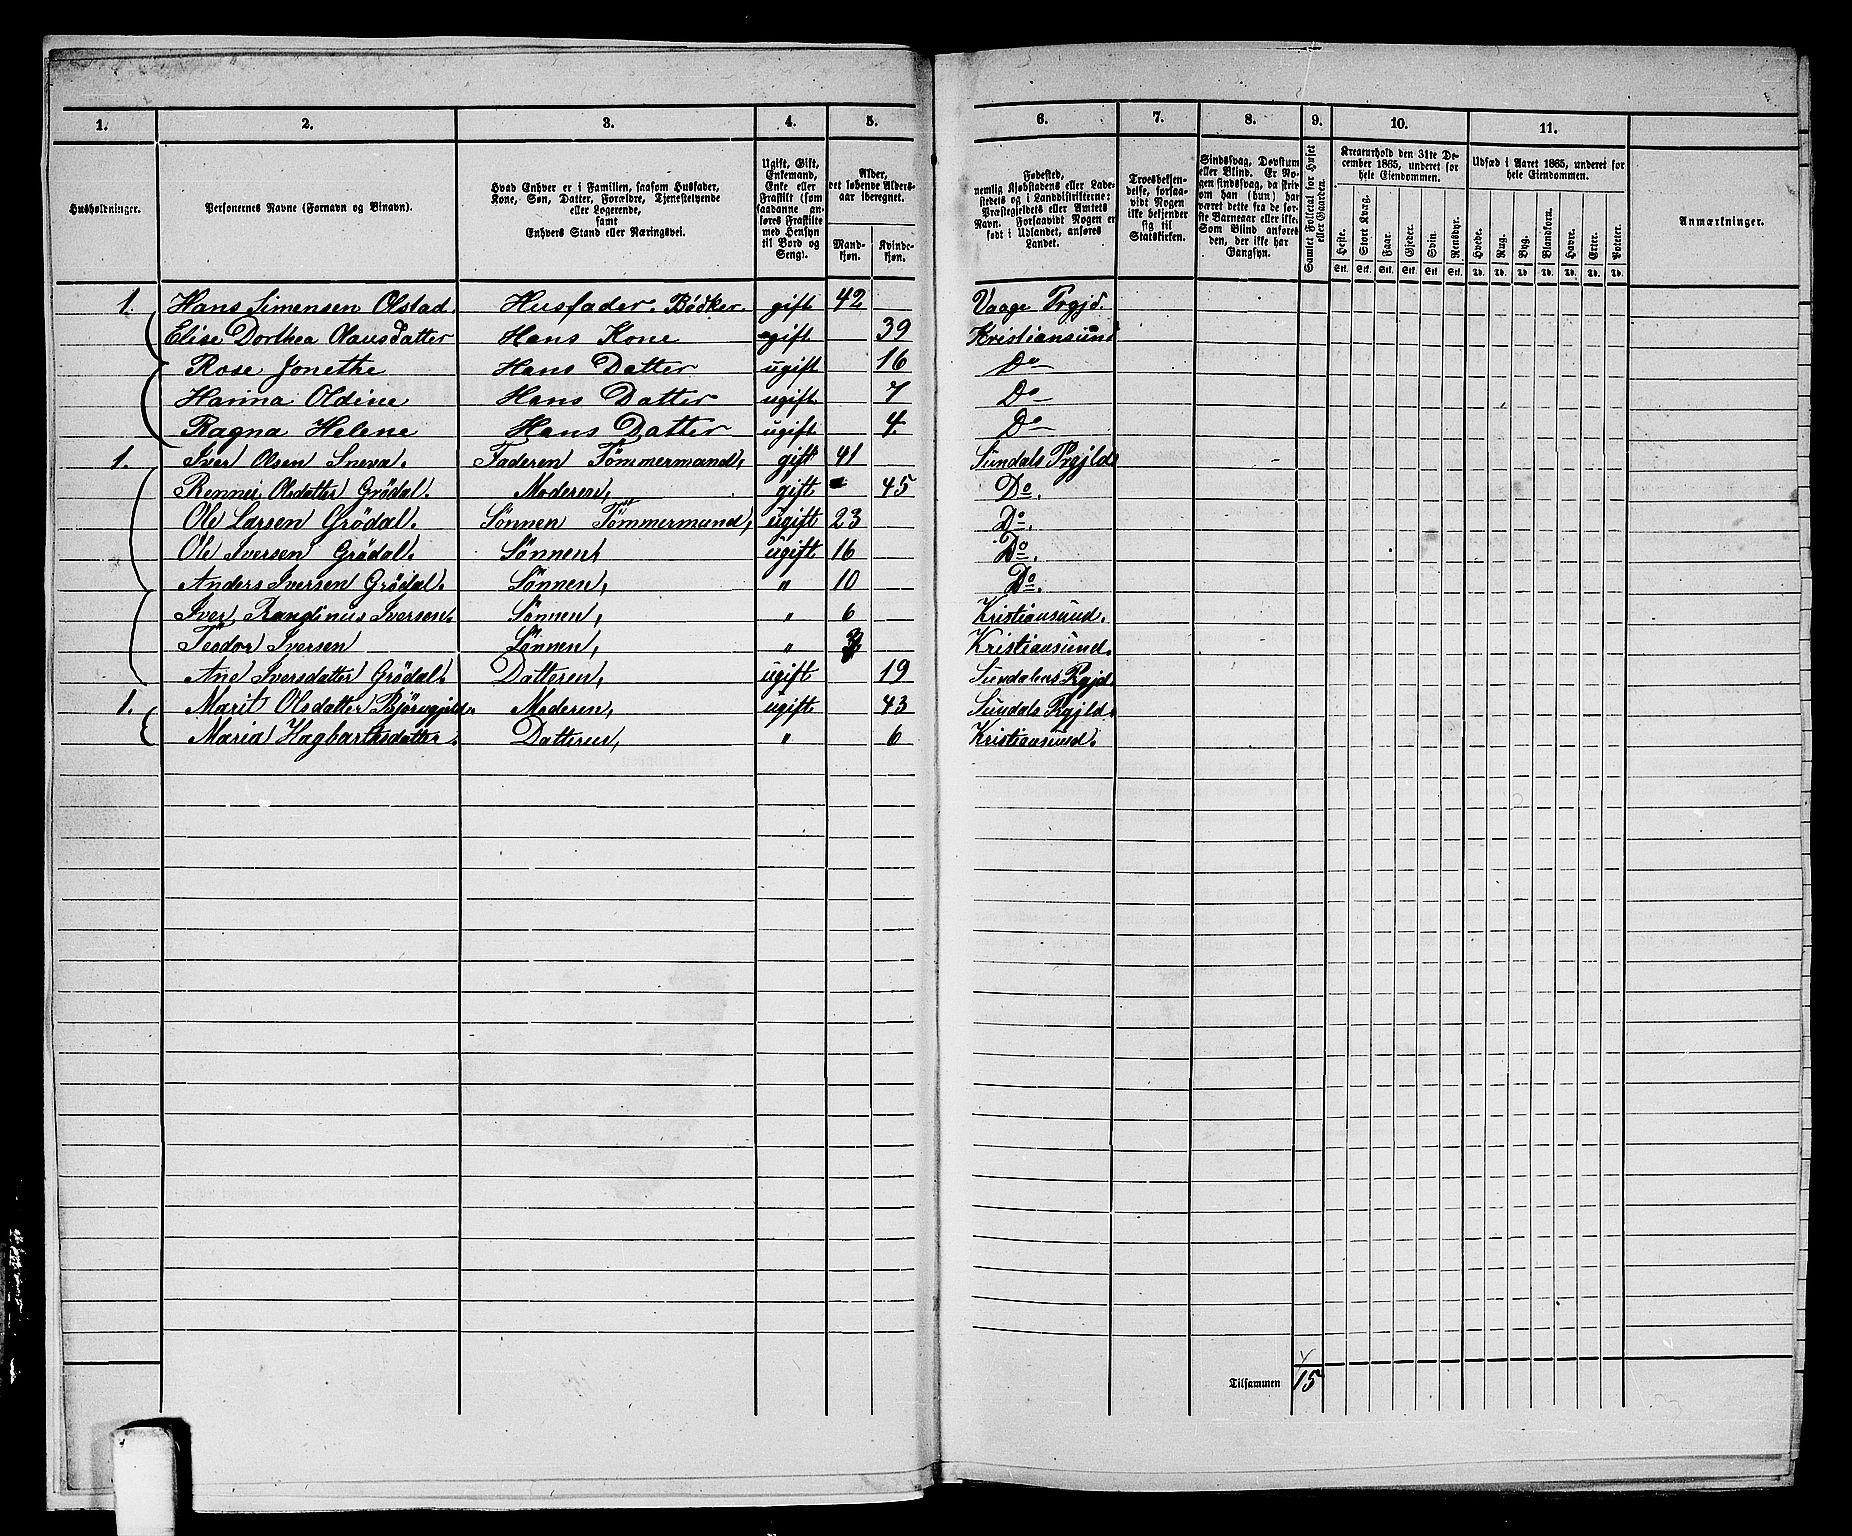 1. 2. 3. 4. 5. 6. 7. 8. 9. 10. 11.
Husholdninger.
Personernes Navne (Fornavn og Binavn).
Hvad Enhver er i Familien, saasom Husfader,
Kone, Søn, Datter, Forældre, Tjenestetyende
eller Logerende,
samt
Enhvers Stand eller Næringsvei.
Ugift, Gift,
Enkemand,
Enke eller
Fraskilt (som
saadanne an-
føres Fraskilte
med Hensyn
til Bord og
Seng).
Alder,
det løbende Alders-
aar iberegnet.
Mand-
kjøn.
Kvinde-
kjøn.
Fødested,
nemlig Kjøbstadens eller Lade-
stedets og i Landdistrikterne:
Præstegjeldets eller Amtets
Navn. Forsaavidt Nogen er
født i Udlandet, anføres
Landet.
Troesbekjen-
delse, forsaa-
vidt Nogen
ikke bekjender
sig til
Statskirken.
Sindssvag, Døvstum
eller Blind. Er No-
gen sindssvag, da skri-
ves om han (hun) har
været dette fra de før-
ste Barneaar eller ikke.
Som Blind anføres
den, der ikke har
Gangsyn.
Samlet Folketal for Huset
eller Gaarden.
Kreaturhold den 31te De-
cember 1865, underet for
hele Eiendommen.
Heste. Stort Kvæg. Faar. Gjeder. Svin. Rensdyr.
Stk. Stk. Stk. Stk. Stk. Stk.
Udsæd i Aaret 1865, underet for
hele Eiendommen.
Hvede. Rug. Byg. Blandkorn. Havre. Erter. Poteter.
Td. Td. Td. Td. Td. Td. Td.
Anmærkninger.
1. Hans Simensen Olstad. Husfader. Bödker. gift 42 Vaage Prgjd.
Elise Dorthea Olausdatter Hans Kone gift 39 Kristiansund
Rose Jonethe Hans Datter ugift 16 Do
Hanna Oldine Hans Datter ugift 7 Do
Ragna Helene Hans Datter ugift 4. Do
1. Iver Olsen Sneva. Faderen Tömmermand, gift 41 Sundals Prgjld
Olsdatter Grödal. Moderen, gift 45 Do.
Ole Larsen Grödal. Sönnen Tömmermand, ugift 23 Do.
Ole Iversen Grödal. Sönnen, ugift 16 Do.
Anders Iversen Grödal. Sönnen, " 10 Do.
Iver Randinus Iversen. Sönnen, " 6 Kristiansund.
Teodor Iversen Sönnen, " 3 Kristiansund.
Ane Iversdatter Grödal. Datteren, ugift 19 Sundalens Pgjd.
1. Marit Olsdatter Moderen, ugift 43 Sundals Pgjld.
Maria Hagbartasdatter. Datteren, " 6 Kristiansund.
Tilsammen 15